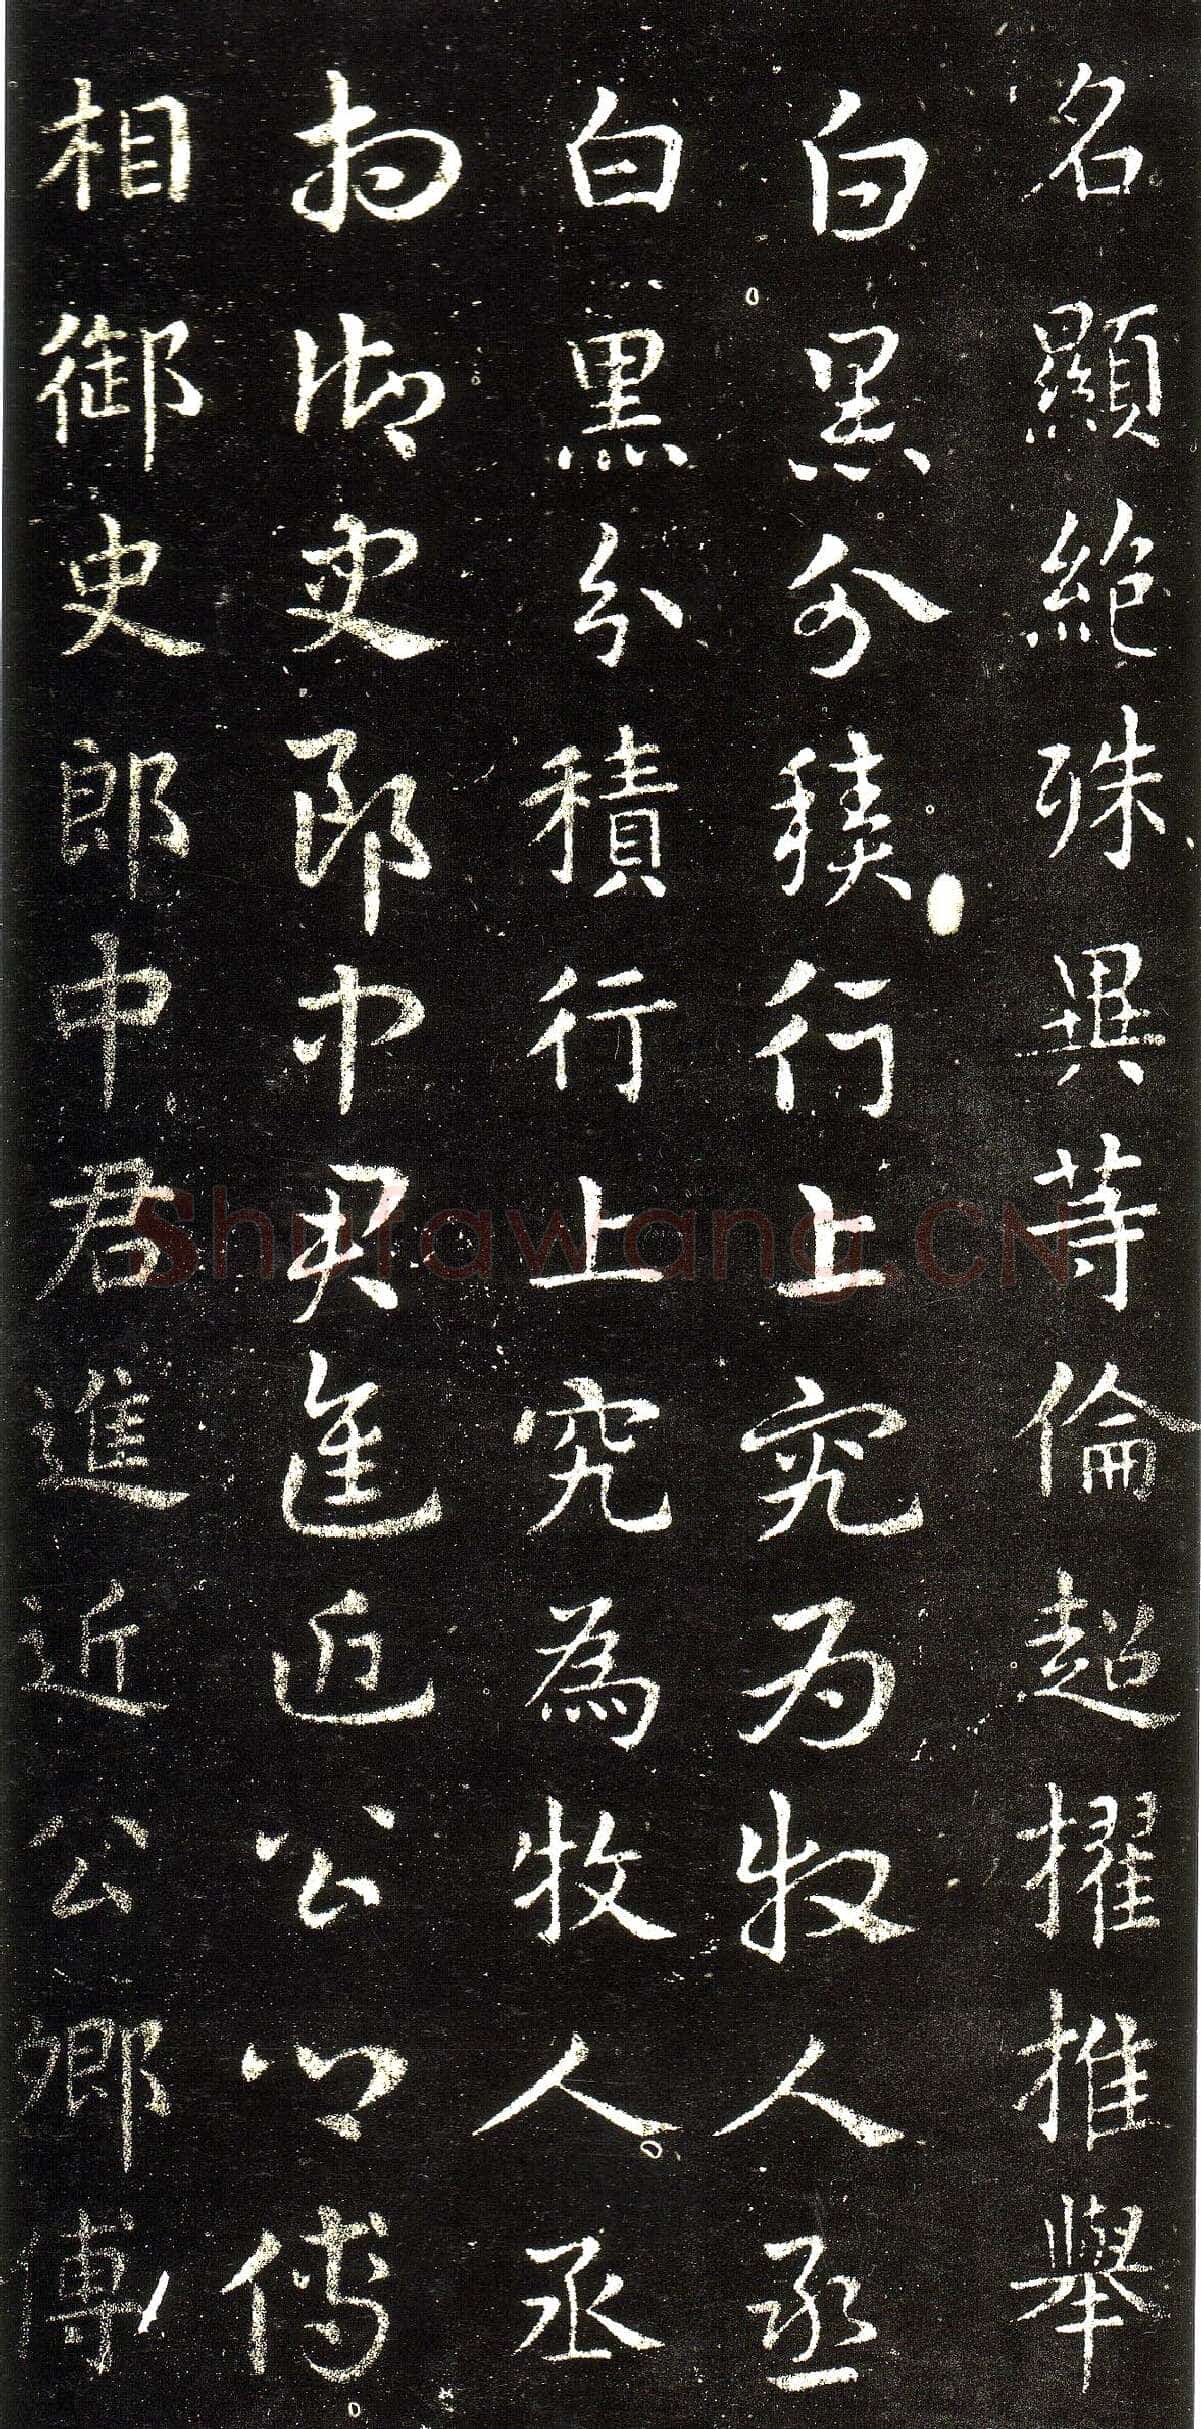 名顯絶殊異等倫超擢推舉
白黑分積行上究為牧人丞
白黑分積行上究為牧人丞
相御史郎中君進近公卿傅
相御史郎中君進近公卿傅
Shufawang.CN